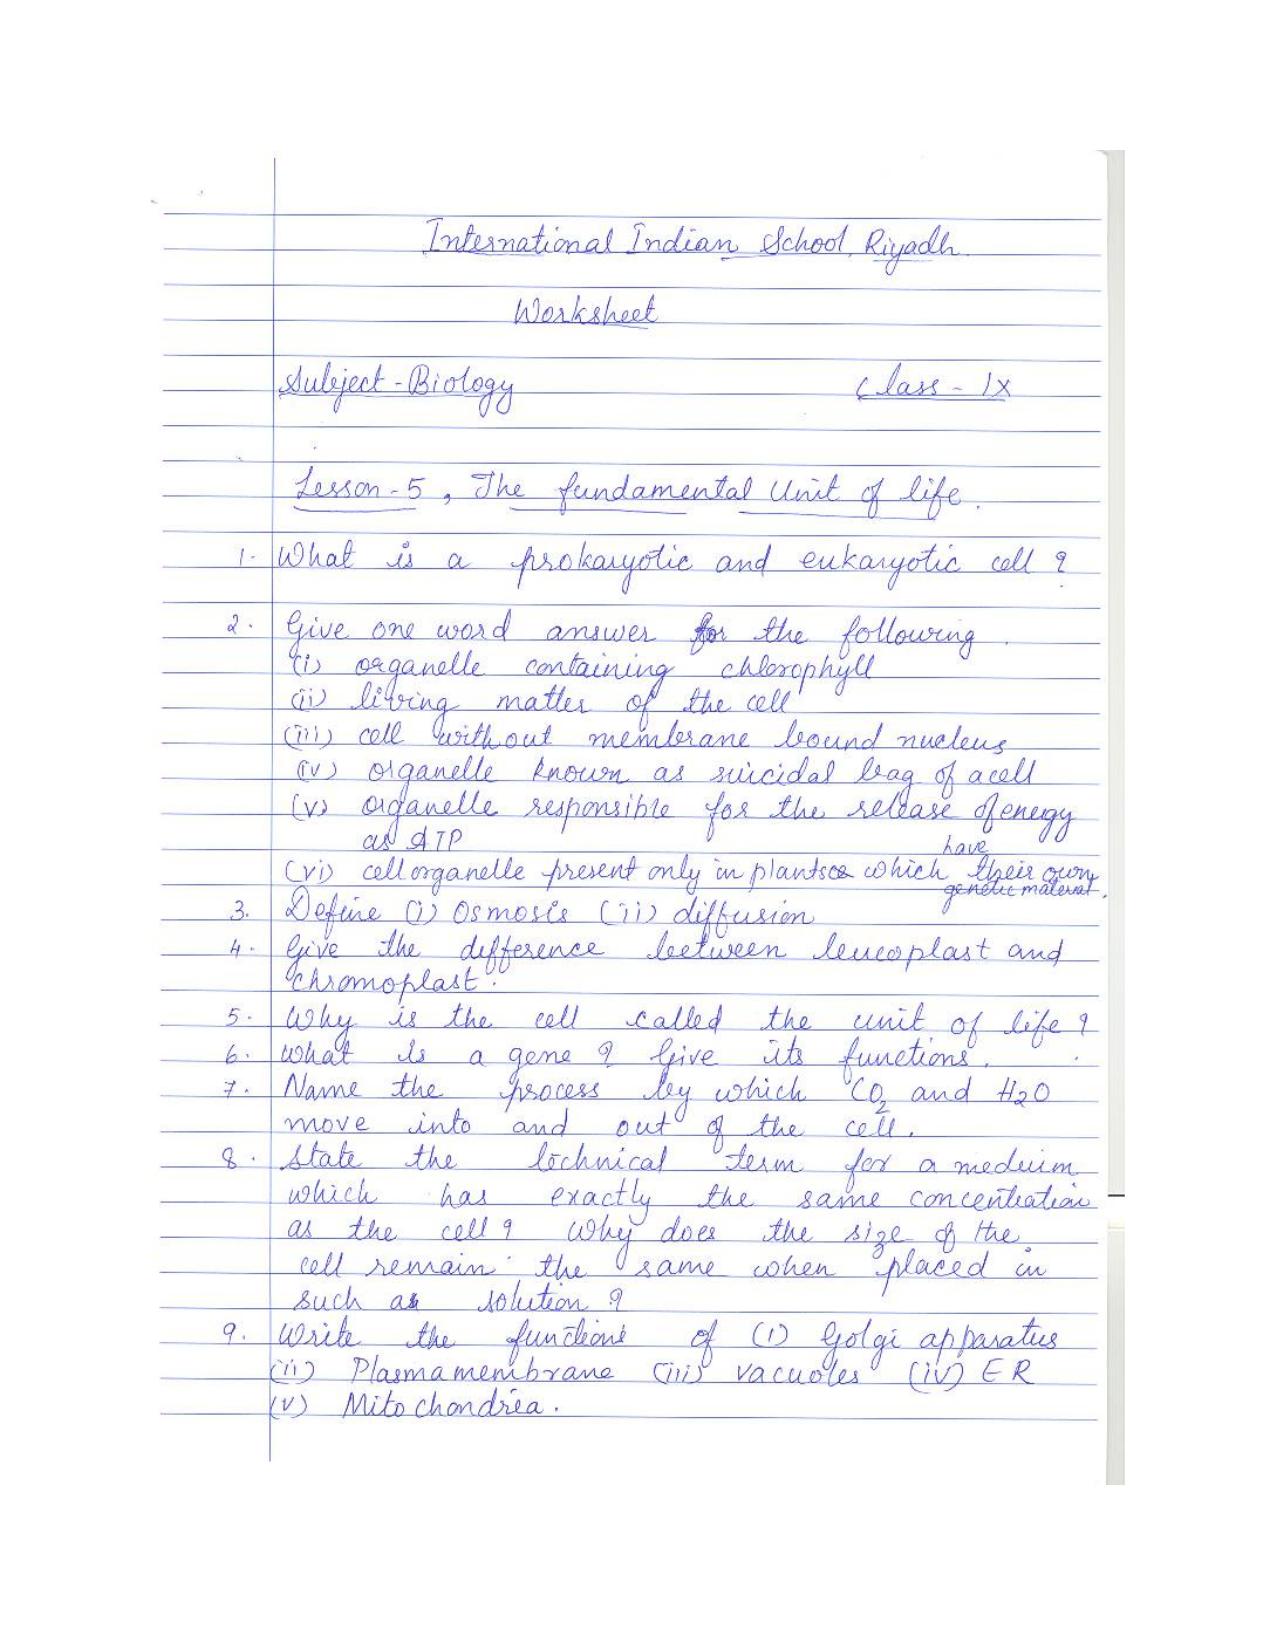 International Indian School, Riyadh.
Worksheet
Subject - Biology Class - IX
Lesson - 5, The fundamental Unit of life.
1. What is a prokaryotic and eukaryotic cell?
2. Give one word answer for the following.
(i) organelle containing chlorophyll
(ii) living matter of the cell
(iii) cell without membrane bound nucleus
(iv) organelle known as suicidal bag of a cell
(v) organelle responsible for the release of energy
as ATP
have
(vi) cell organelle present only in plants which their own
genetic material.
3. Define (i) Osmosis (ii) diffusion
4. Give the difference between leucoplast and
chromoplast.
5. Why is the cell called the unit of life?
6. What is a gene? Give its functions.
7. Name the process by which CO2 and H2O
move into and out of the cell.
8. State the technical term for a medium
which has exactly the same concentration
as the cell? Why does the size of the
cell remain the same when placed in
such as solution?
9. Write the functions of (i) Golgi apparatus
(ii) Plasma membrane (iii) vacuoles (iv) ER
(v) Mitochondria.